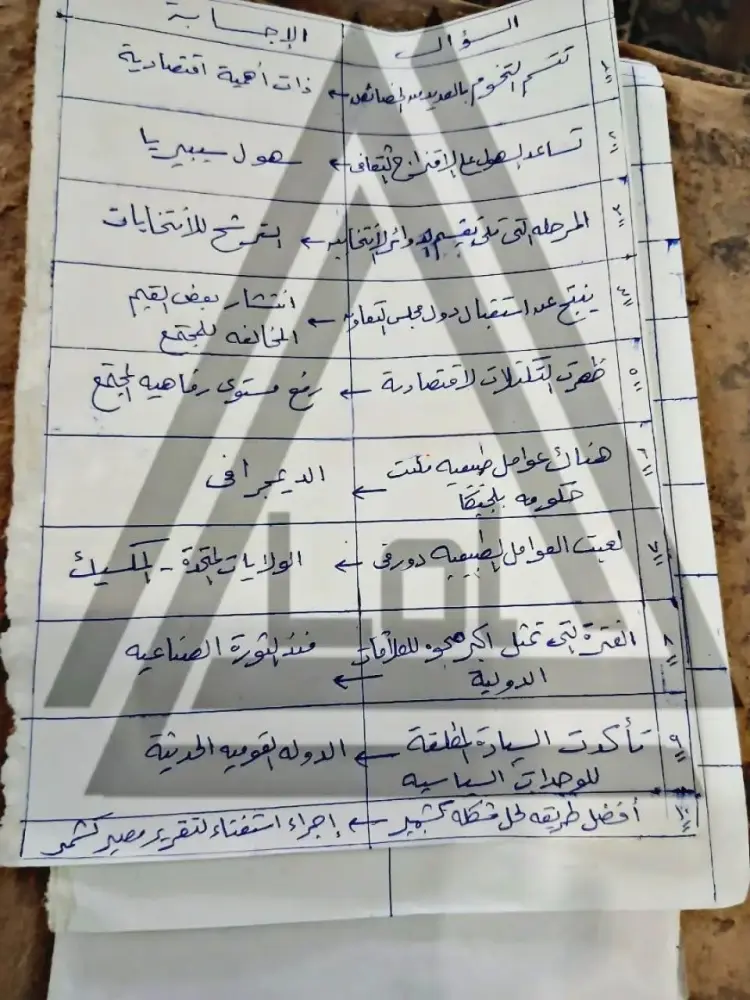 السؤال الإجابة
١ تتسم التخوم بالعديد من الخصائص ← ذات أهمية اقتصادية
٢ تساعد السهول على الاقتراح الثقافى ← سهول سيبيريا
٣ المرحله التى تلى تقسيم الدوائر الأنتخابيه ← الترشح للأنتخابات
٤ ينتج عن استقبال دول مجلس التعاون ← انتشار بعض القيم
المخالفه للمجتمع
٥ ظهرت التكتلات الاقتصادية ← رفع مستوى رفاهيه المجتمع
٦ هناك عوامل طبيعيه ← الديمجرافى
حكومه بلجيكا
٧ لعبت العوامل الطبيعيه دور فى ← الولايات المتحدة - المكسيك
٨ الفترة التى تمثل اكبر للعلاقات ← منذ الثورة الصناعيه
الدولية
٩ تأكدت السيادة المطلقة ← الدوله القوميه الحديثة
للوحدات السياسيه
١٠ أفضل طريقه لحل مشكله كشمير ← إجراء استفتاء لتقرير مصير كشمير
LoL